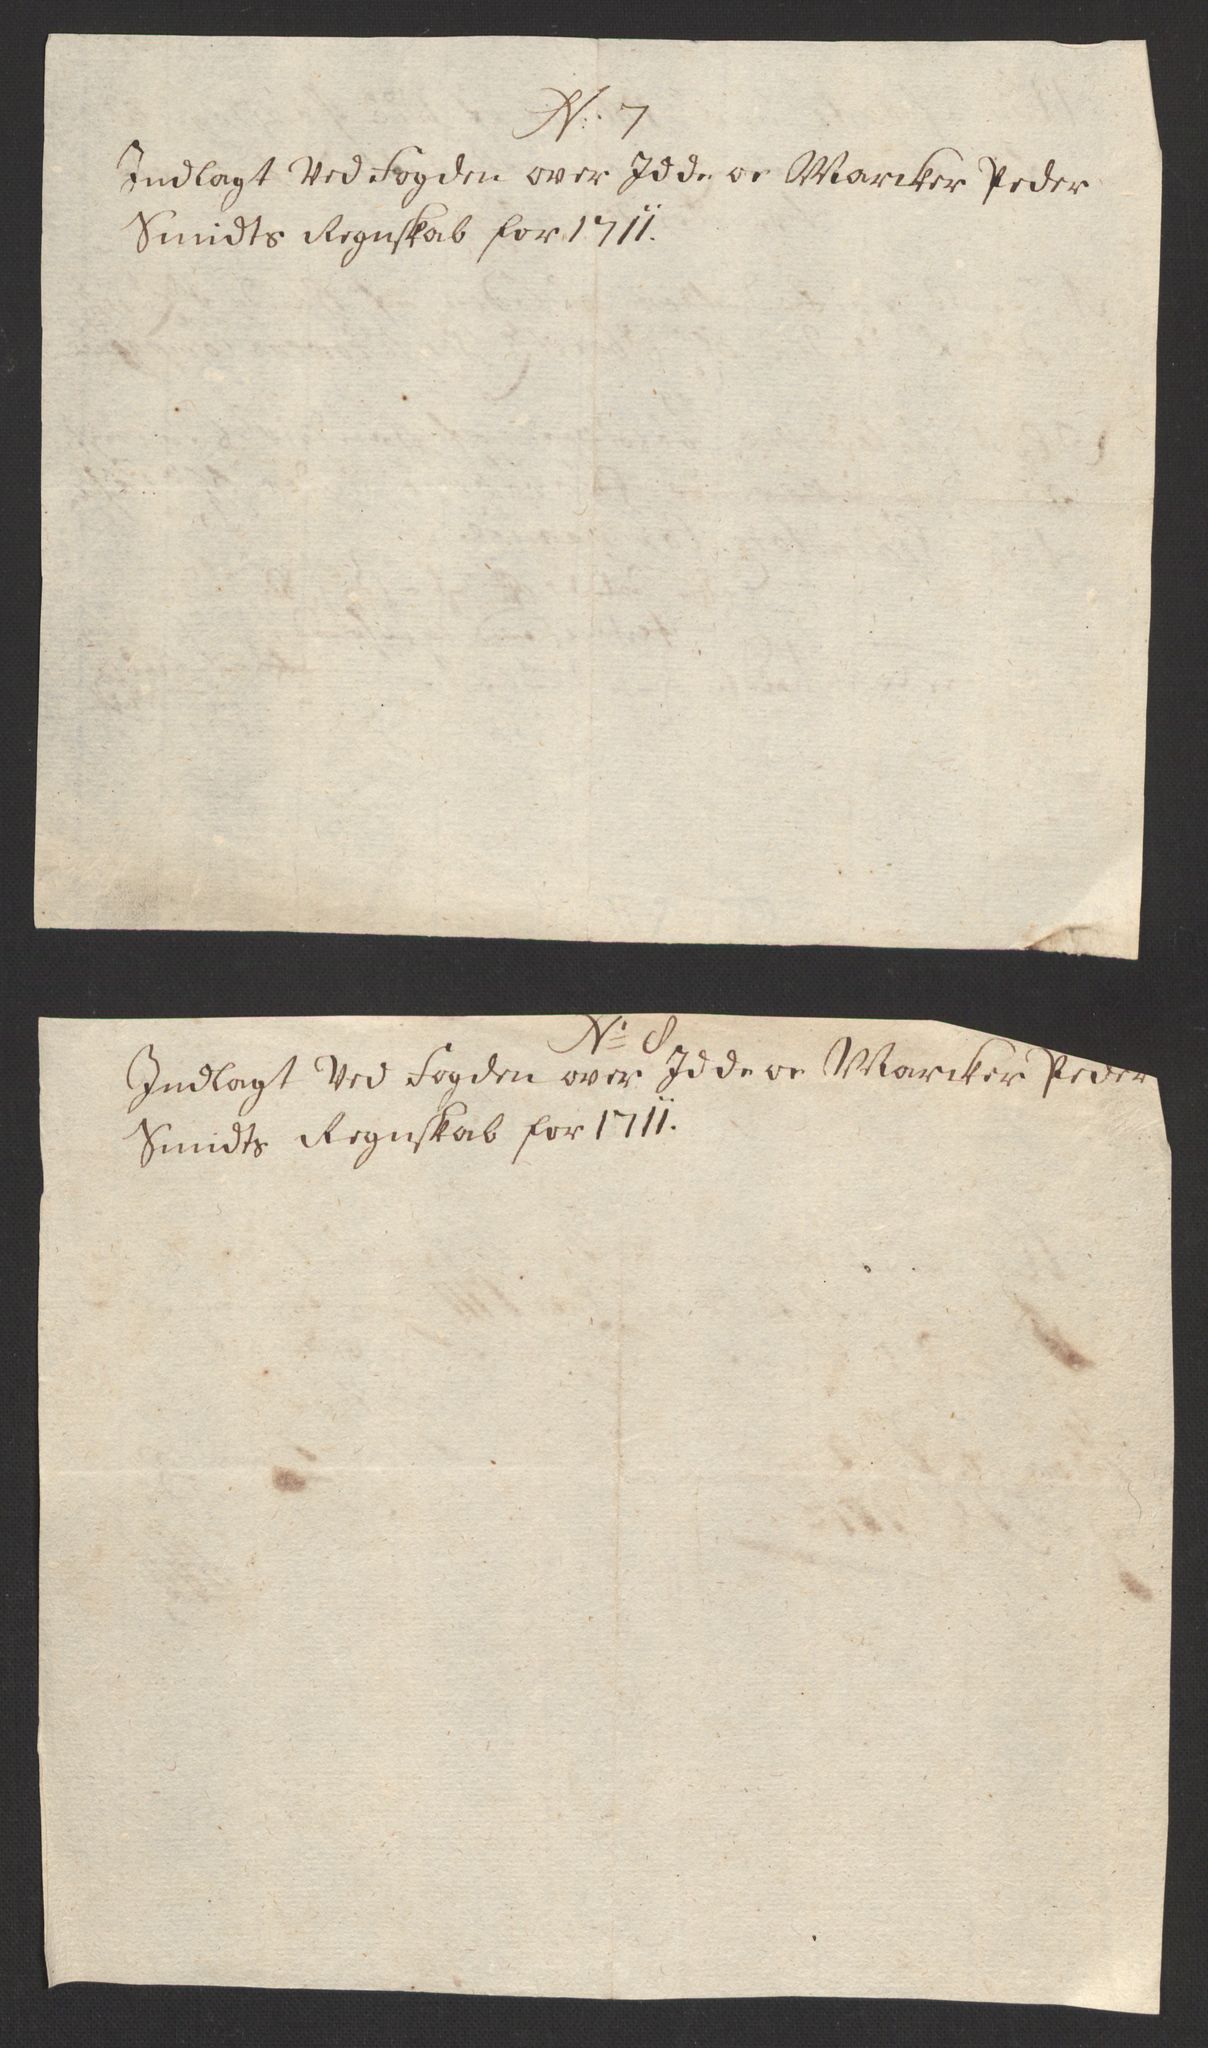 N: 7
Indlagt Ved Fogden over Idde oe Marcker Peder
Smidts Regnskab for 1711.
N: 8
Indlagt Ved Fogden over Idde oe Marcker Peder
Smidts Regnskab for 1711.